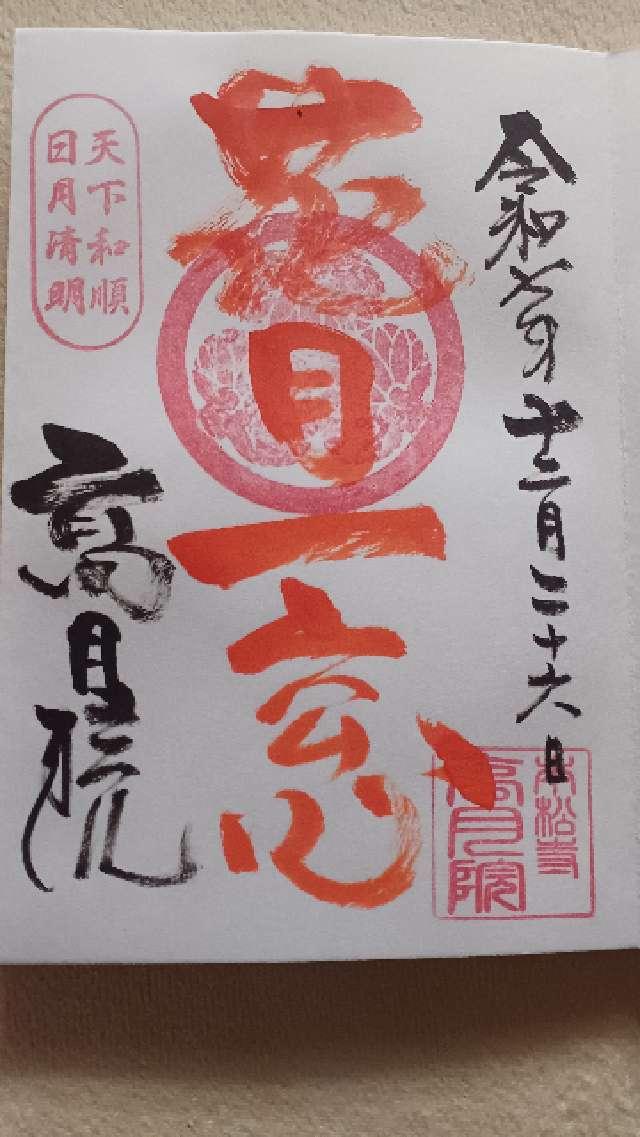 令和七年十二月二十六日
天下和順
日月清明
高月院
本松寺
高月院